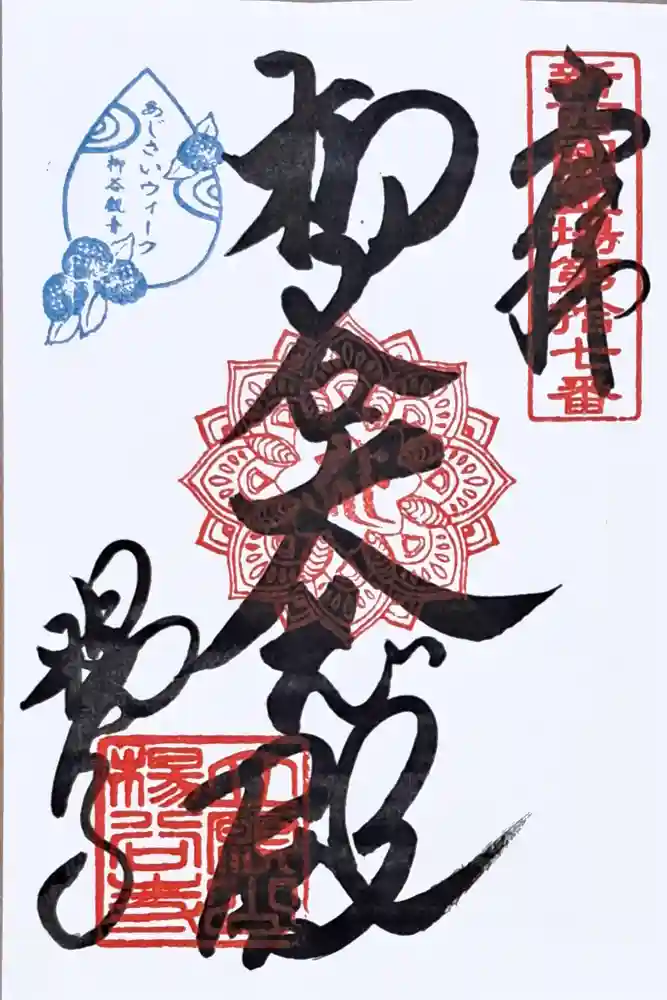 奉拝
新西国霊場第拾七番
柳谷大悲殿
あじさいウィーク
柳谷観音
楊谷寺
立願山
楊谷寺